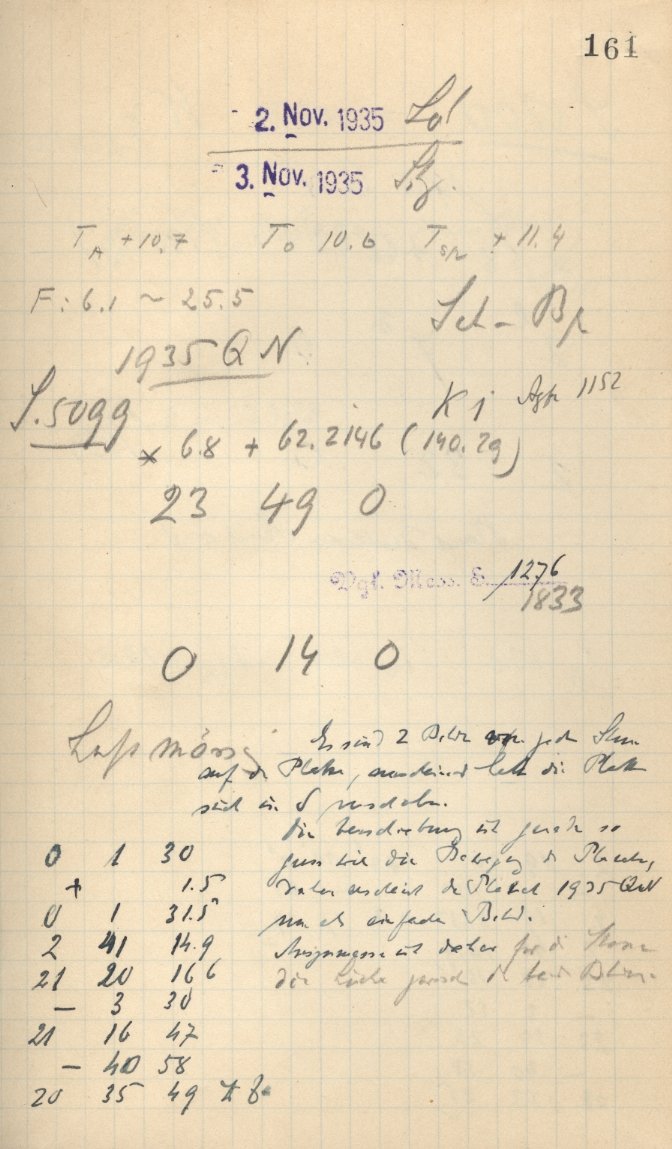 161
2. Nov. 1935 Lö!
3. Nov. 1935
T_A +10.7 T_O 10.6 T_Spl + 11.4
F: 6.1 ~ 25.5
1935 QN
S. 5099
Kj 1152
* 6.8 + 62.2146 (140.29)
23 49 0
Vgl. Mess. S. 1276
1833
0 14 0
Luft mässig
Es sind 2 Bilder von jedem Stern
auf der Platte, anscheinend hat die Platte
sich in δ verschoben.
Die Verschiebung ist gerade so
gross wie die Bewegung des Planeten,
daher erscheint der Planet 1935 QN
nur als einfaches Bild.
Ausgemessen ist daher für die Sterne
die Lücke zwischen den beiden
0 1 30
+ 1.5
0 1 31.5
2 41 14.9
21 20 16.6
— 3 30
21 16 47
— 40 58
20 35 49